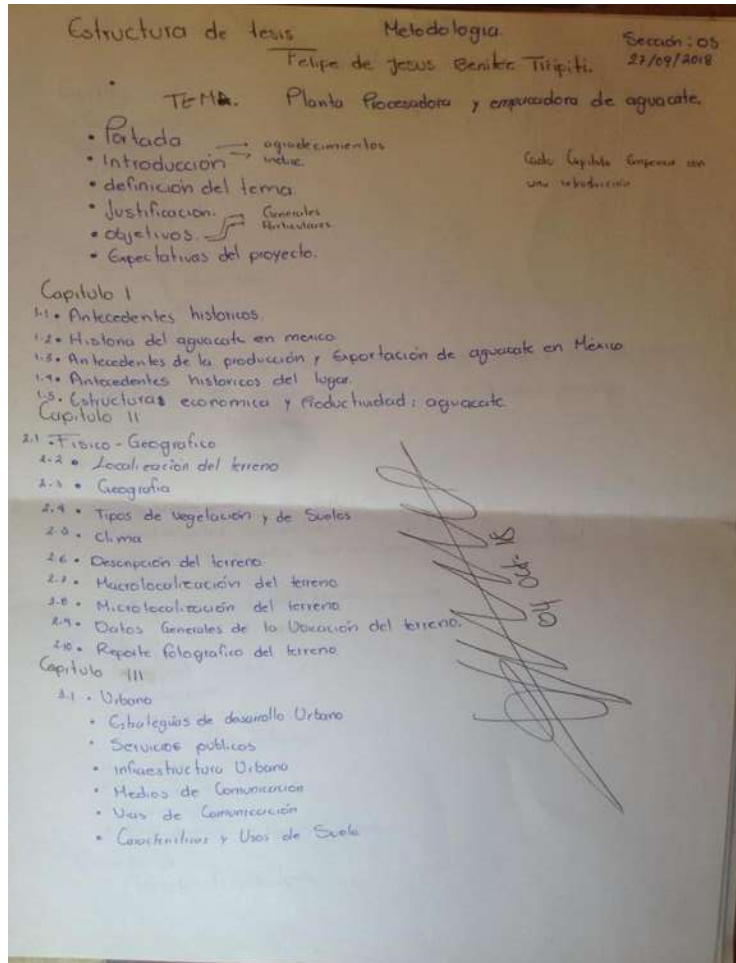 Estructura de tesis Metodologia Sección: 05
Felipe de Jesus Benitez Tiripiti. 27/09/2018
TEMA. Planta Procesadora y empacadora de aguacate.
• Portada → agradecimientos
• Introducción → indice.
• definición del tema.
• Justificación.
• objetivos. Generales Particulares
• Expectativas del proyecto.
Cada Capitulo Empieza con
una introducción
Capitulo I
1.1. • Antecedentes historicos.
1.2 • Historia del aguacate en mexico
1.3. • Antecedentes de la producción y Exportación de aguacate en México
1.4. • Antecedentes historicos del lugar.
1.5. • Estructuras economica y Productividad: aguacate
Capitulo II
2.1 • Fisico - Geografico
2.2 • Localización del terreno
2.3 • Geografia
2.4 • Tipos de vegetación y de Suelos
2.5 • Clima
2.6 • Descripción del terreno
2.7 • Macrolocalización del terreno
2.8 • Microlocalización del terreno
2.9 • Datos Generales de la Ubicación del terreno.
2.10 • Reporte fotografico del terreno.
Capitulo III
3.1 • Urbano
• Estrategias de desarrollo Urbano
• Servicios publicos
• infraestructura Urbano
• Medios de Comunicación
• Vias de Comunicación
• Caracteristicas y Usos de Suelo
04 Oct. 18